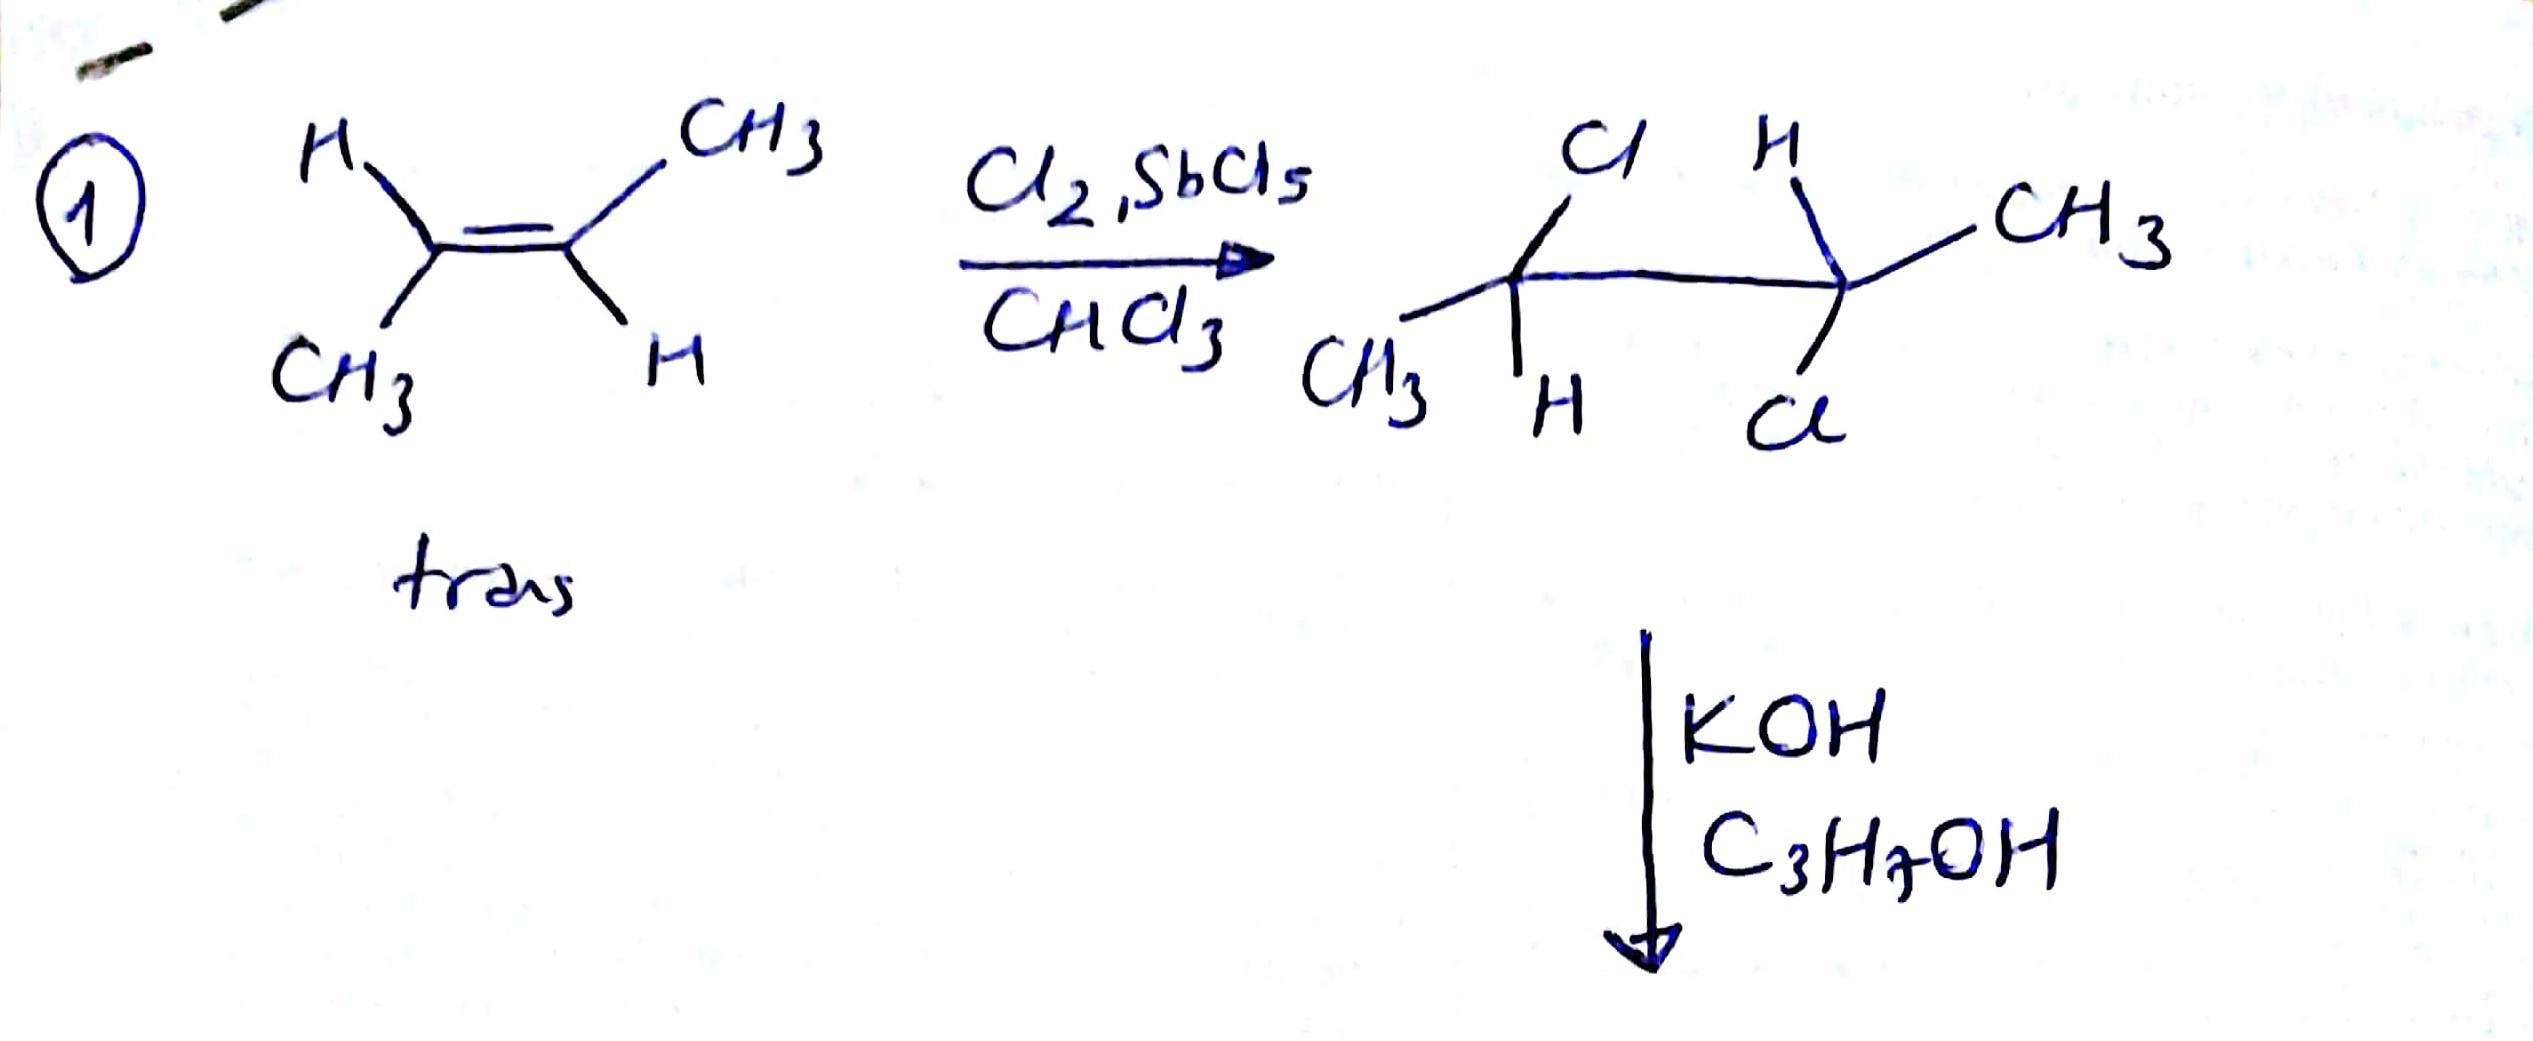 1
H CH3
CH3 H
trans
Cl2, SbCl5
CHCl3
Cl H
CH3
CH3
H Cl
KOH
C3H7OH